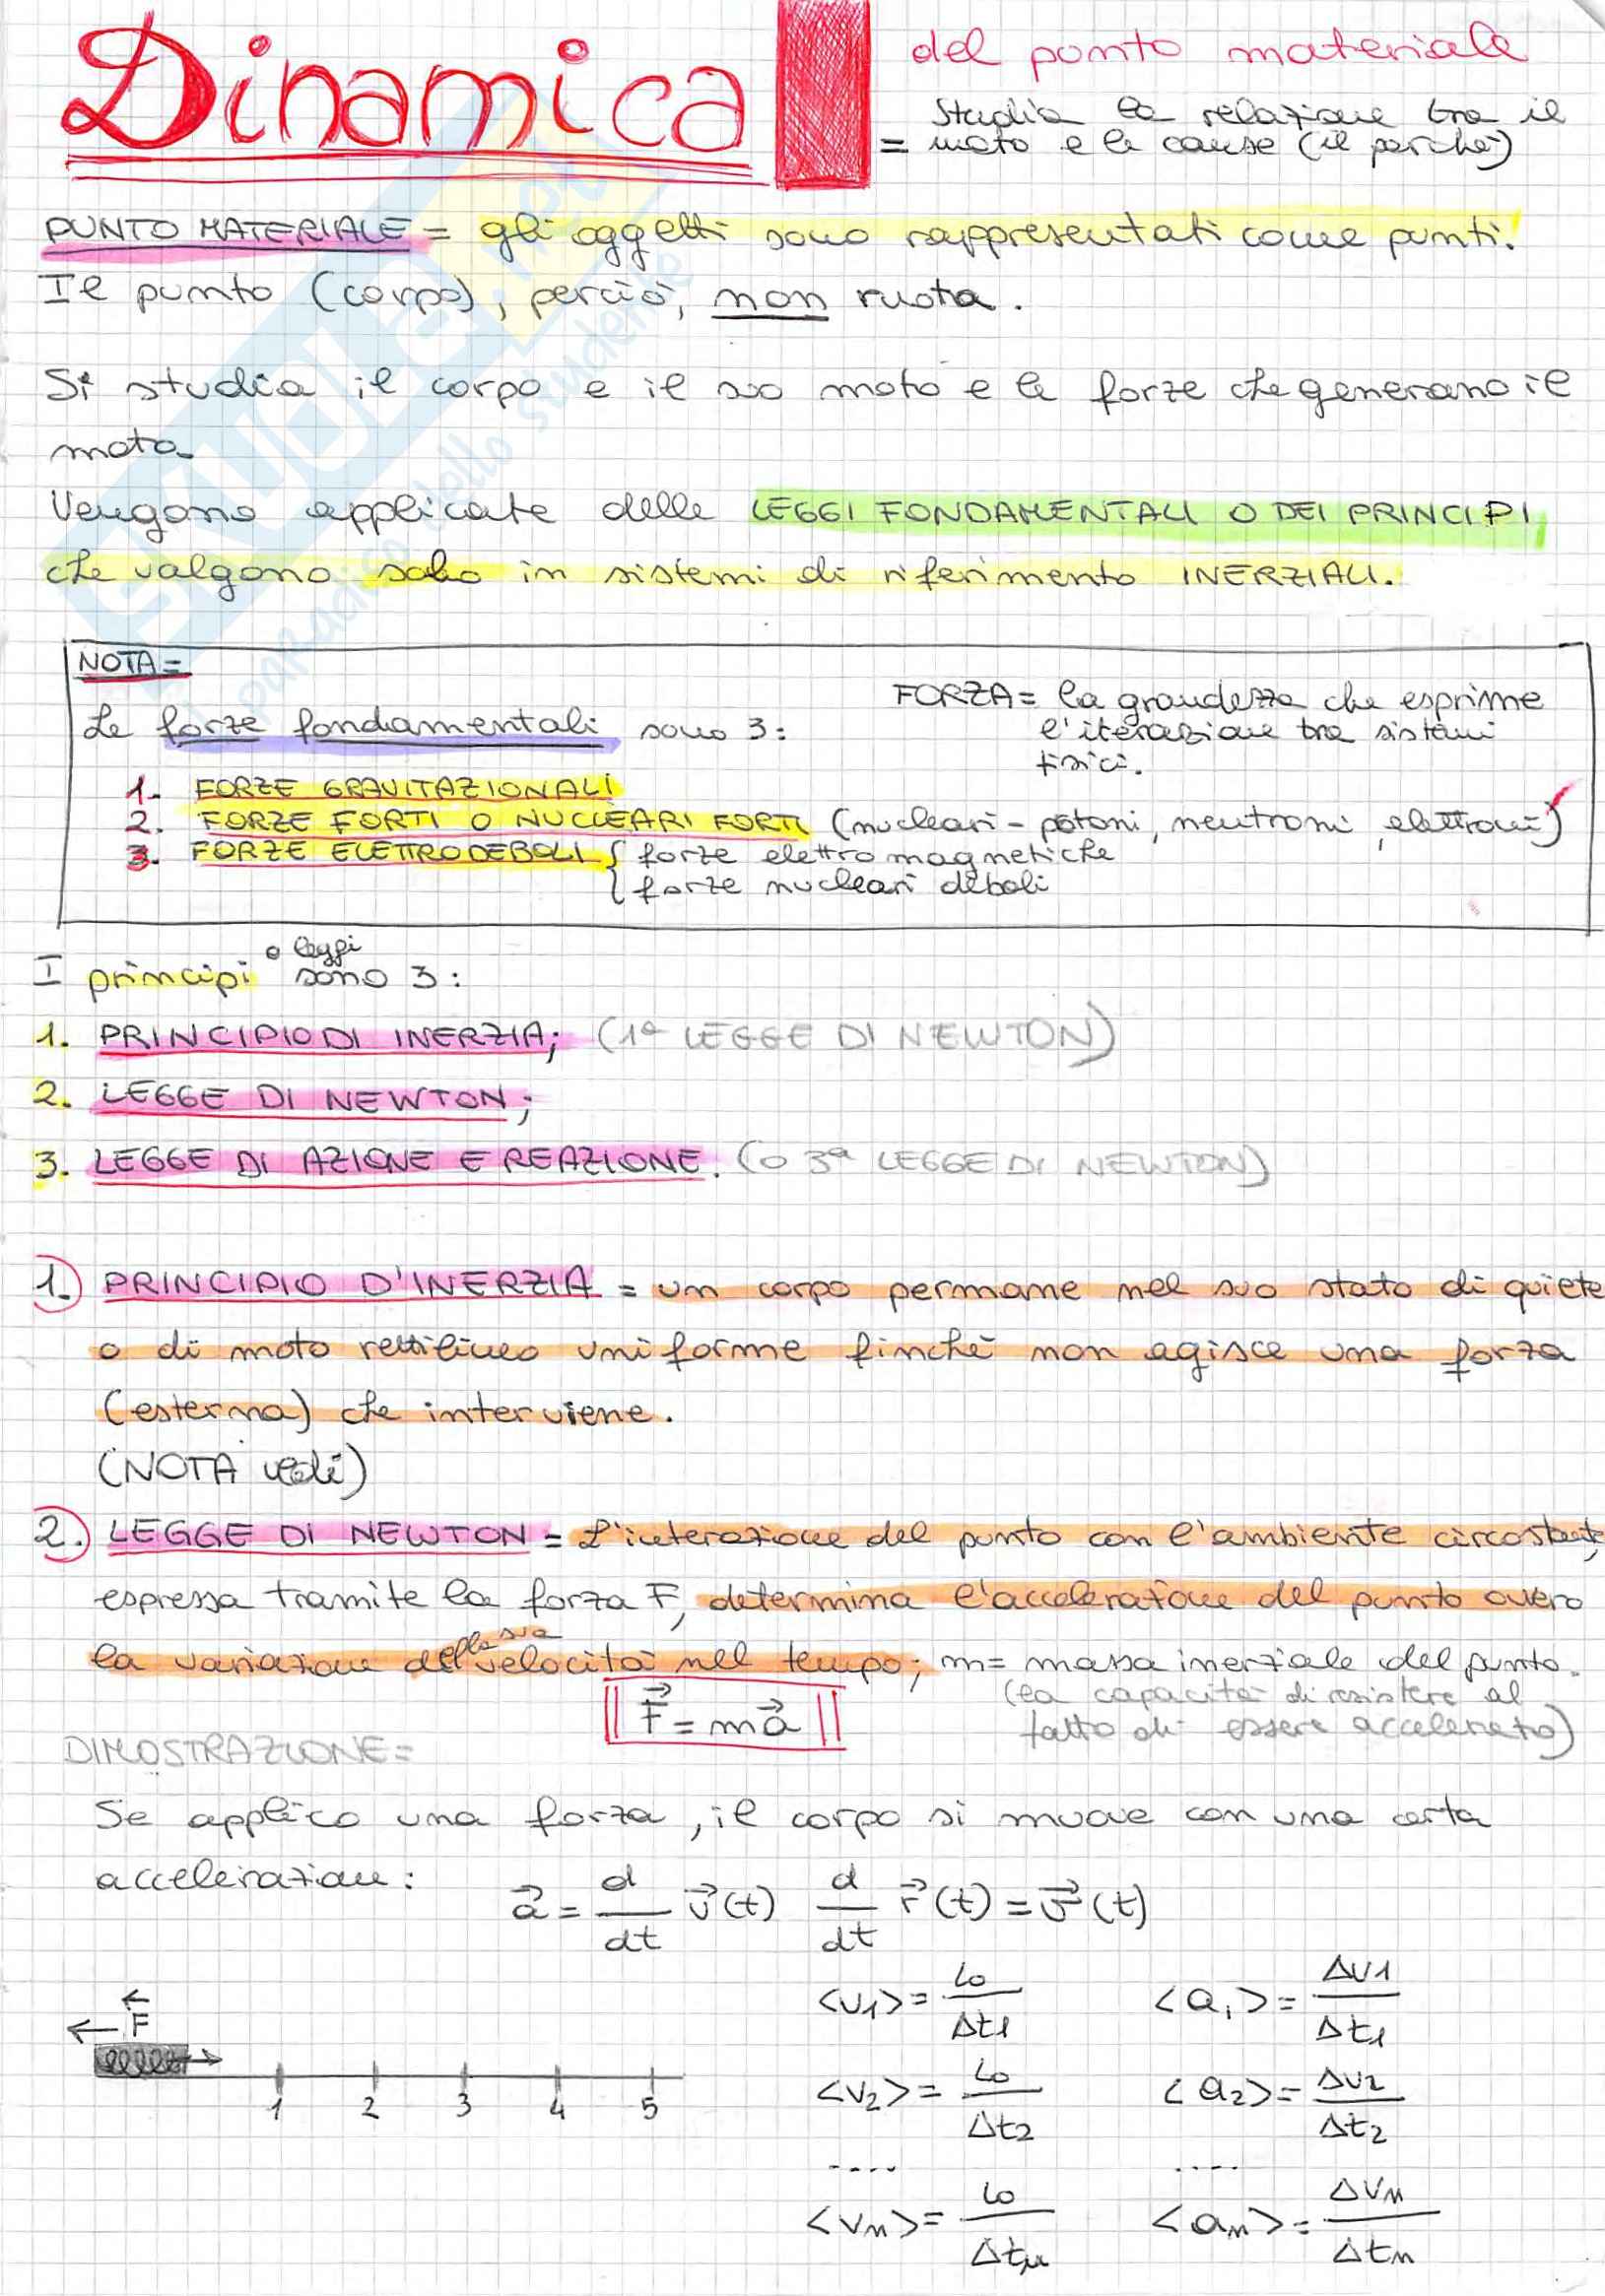 Dinamica del punto materiale
= studia la relazione tra il
moto e le cause (il perché)
PUNTO MATERIALE = gli oggetti sono rappresentati come punti.
Il punto (corpo), perciò, non ruota.
Si studia il corpo e il suo moto e le forze che generano il
moto.
Vengono applicate delle LEGGI FONDAMENTALI O DEI PRINCIPI,
che valgono solo in sistemi di riferimento INERZIALI.
NOTA=
FORZA = la grandezza che esprime
l'iterazione tra sistemi
fisici.
Le forze fondamentali sono 3:
1. FORZE GRAVITAZIONALI
2. FORZE FORTI O NUCLEARI FORTI (nucleari - potoni, neutroni, elettroni)
3. FORZE ELETTRODEBOLI { forze elettromagnetiche
{ forze nucleari deboli
I principi o leggi sono 3:
1. PRINCIPIO DI INERZIA; (1ª LEGGE DI NEWTON)
2. LEGGE DI NEWTON;
3. LEGGE DI AZIONE E REAZIONE. (O 3ª LEGGE DI NEWTON)
1.) PRINCIPIO D'INERZIA = un corpo permane nel suo stato di quiete
o di moto rettilineo uniforme finché non agisce una forza
(esterna) che interviene.
(NOTA vedi)
2.) LEGGE DI NEWTON = L'interazione del punto con l'ambiente circostante,
espressa tramite la forza F, determina l'accelerazione del punto ovvero
la variazione della sua velocità nel tempo; m = massa inerziale del punto.
(la capacità di resistere al
fatto di essere accelerato)
F⃗ = ma⃗
DIMOSTRAZIONE=
Se applico una forza, il corpo si muove con una certa
accelerazione:
a⃗ = d/dt v⃗(t) d/dt r⃗(t) = v⃗(t)
<v1> = L0/Δt1 <a1> = Δv1/Δt1
F
<v2> = L0/Δt2 <a2> = Δv2/Δt2
1 2 3 4 5
.... ....
<vn> = L0/Δtn <an> = Δvn/Δtn